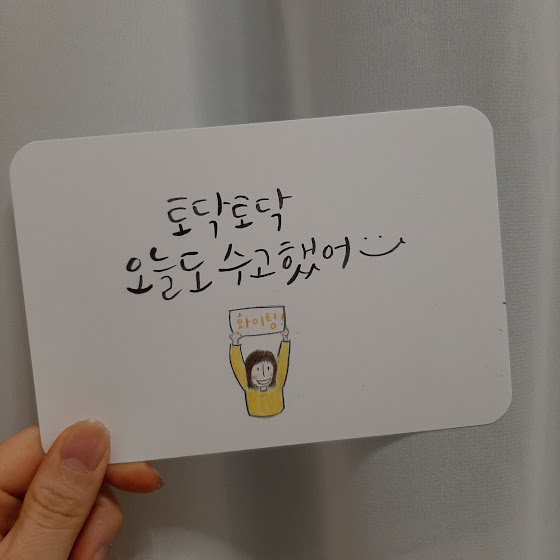 토닥토닥
오늘도 수고했어
화이팅!